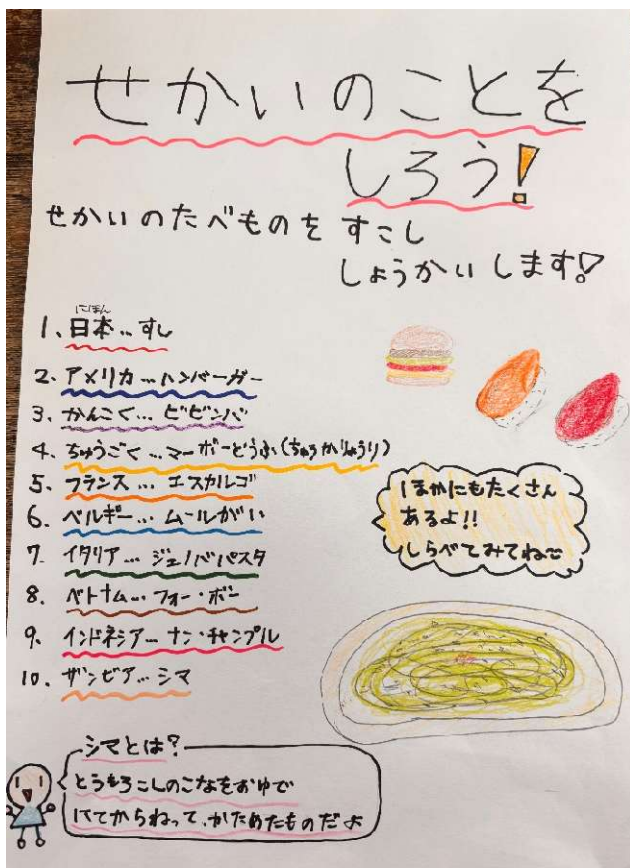 せかいのことを
しろう!
せかいのたべものを すこし
しょうかいします!
にほん
1、日本…すし
2、アメリカ…ハンバーガー
3、かんこく…ビビンバ
4、ちゅうごく…マーボーどうふ(ちゅうかりょうり)
5、フランス…エスカルゴ
6、ベルギー…ムールがい
7、イタリア…ジェノバパスタ
8、ベトナム…フォー・ボー
9、インドネシア…ナシ・チャンプル
10、ザンビア…シマ
ほかにもたくさん
あるよ!!
しらべてみてね
シマとは?
とうもろこしのこなをおゆで
にてからねって、かためたものだよ